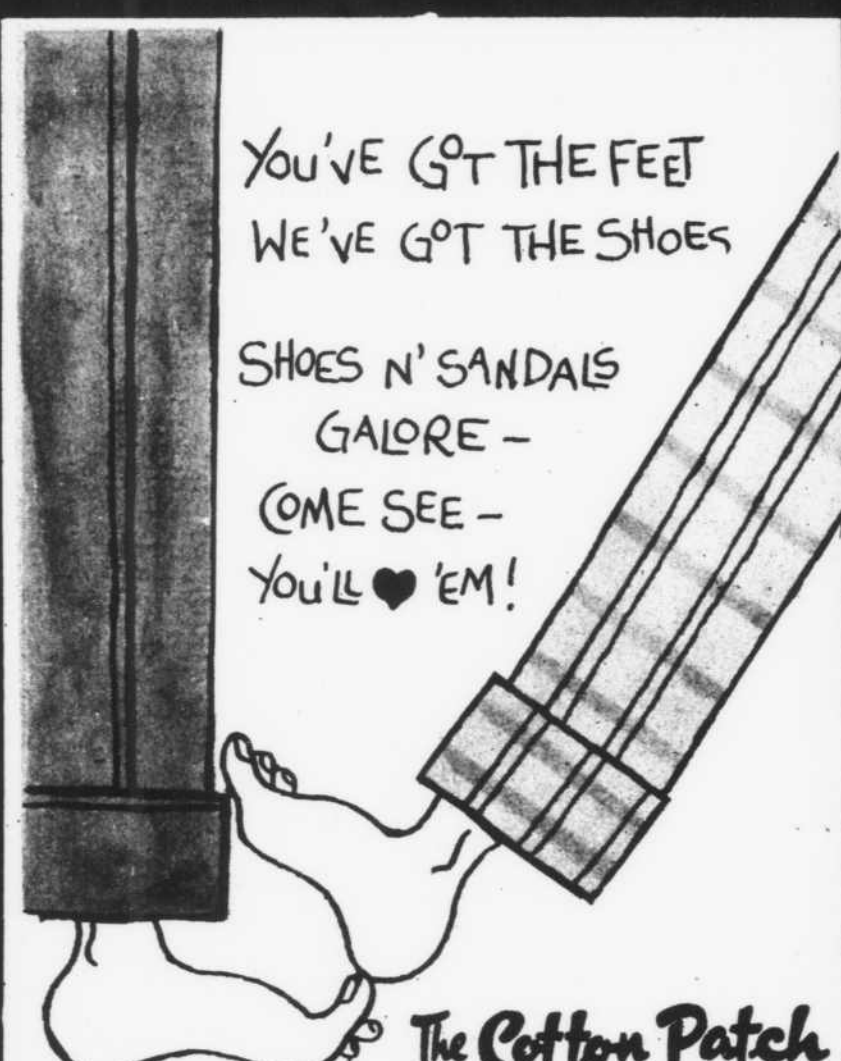 YOU'VE GOT THE FEET
WE'VE GOT THE SHOES
SHOES N' SANDALS
GALORE –
COME SEE –
YOU'LL ♥ 'EM!
The Cotton Patch